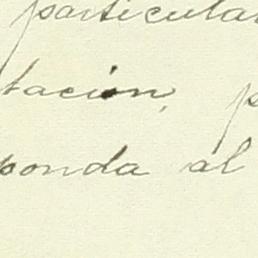 particular
tación, p
ponda al